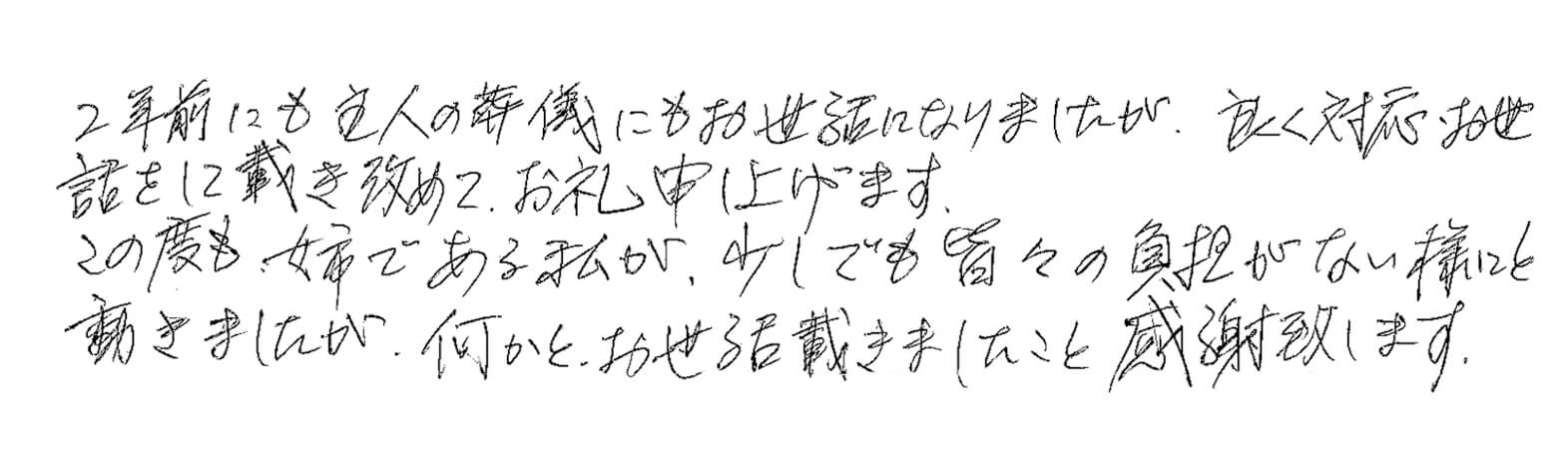 2年前にも主人の葬儀にもお世話になりましたが、良く対応、お世
話をして載き改めて、お礼申し上げます。
この度も、姉である私が、少しでも皆々の負担がない様にと
動きましたが、何かと、お世話載きましたこと感謝致します。